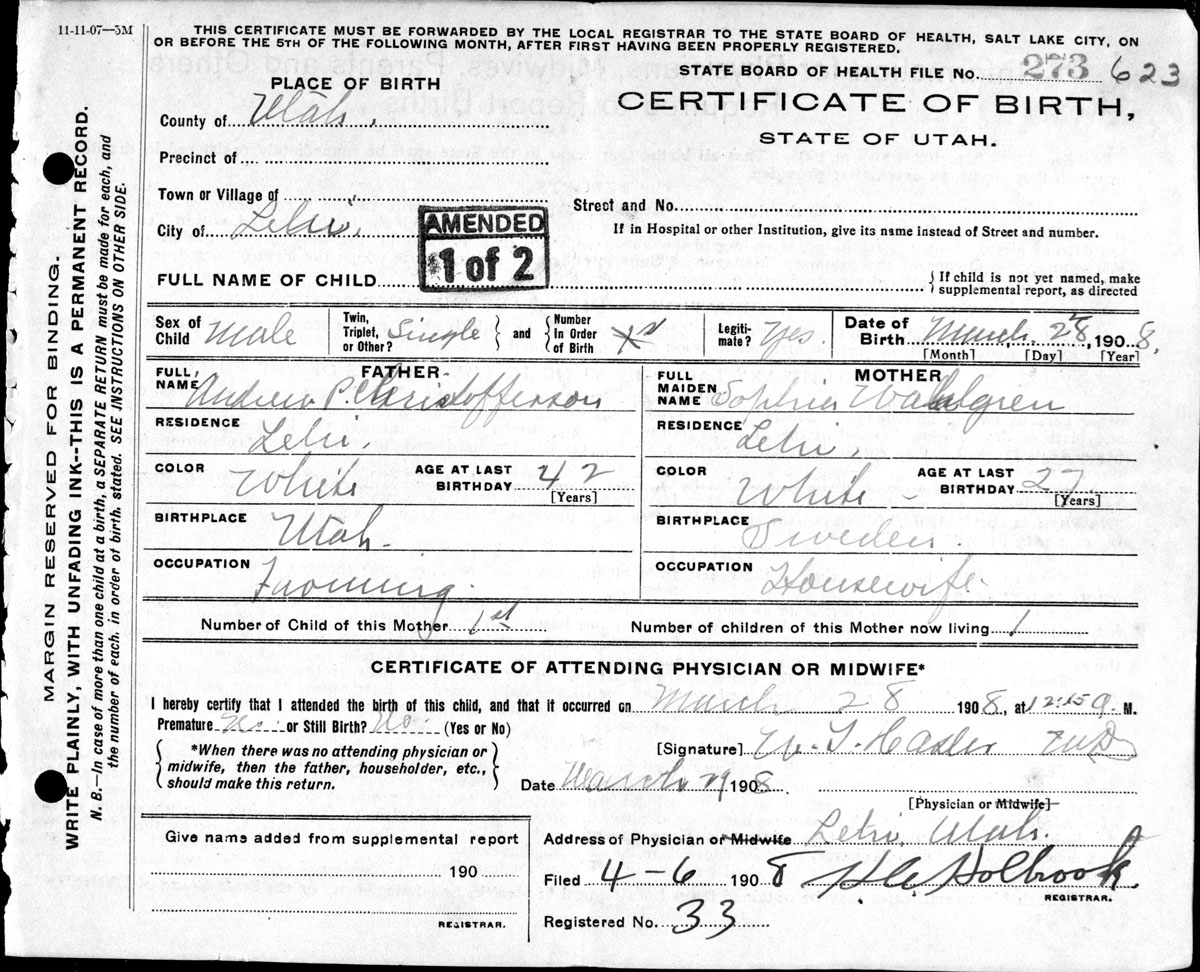 11-11-07—3M
THIS CERTIFICATE MUST BE FORWARDED BY THE LOCAL REGISTRAR TO THE STATE BOARD OF HEALTH, SALT LAKE CITY, ON
OR BEFORE THE 5TH OF THE FOLLOWING MONTH, AFTER FIRST HAVING BEEN PROPERLY REGISTERED.
STATE BOARD OF HEALTH FILE No. 273 623
PLACE OF BIRTH
CERTIFICATE OF BIRTH,
STATE OF UTAH.
County of Utah,
Precinct of
Town or Village of
Street and No.
City of Lehi,
AMENDED
1 of 2
If in Hospital or other Institution, give its name instead of Street and number.
FULL NAME OF CHILD
{ If child is not yet named, make
supplemental report, as directed
Sex of Child Male
Twin, Triplet, or Other? Single } and { Number In Order of Birth
Legitimate? Yes.
Date of Birth March, 28, 1908,
[Month] [Day] [Year]
FATHER
FULL NAME Andrew P. Christofferson
RESIDENCE Lehi,
COLOR White
AGE AT LAST BIRTHDAY 42
[Years]
BIRTHPLACE Utah.
OCCUPATION Farming.
MOTHER
FULL MAIDEN NAME Sophia Wahlgren
RESIDENCE Lehi,
COLOR White
AGE AT LAST BIRTHDAY 27
[Years]
BIRTHPLACE Sweden.
OCCUPATION Housewife.
Number of Child of this Mother 1st
Number of children of this Mother now living 1
CERTIFICATE OF ATTENDING PHYSICIAN OR MIDWIFE*
I hereby certify that I attended the birth of this child, and that it occurred on March 28 1908, at 12:15 a. M.
Premature No. or Still Birth? No. (Yes or No)
*When there was no attending physician or
midwife, then the father, householder, etc.,
should make this return.
[Signature]
Date March 29 1908
[Physician or Midwife]
Give name added from supplemental report
190
REGISTRAR.
Address of Physician or Midwife Lehi, Utah.
Filed 4-6 1908 Holbrook.
REGISTRAR.
Registered No. 33
MARGIN RESERVED FOR BINDING.
WRITE PLAINLY, WITH UNFADING INK--THIS IS A PERMANENT RECORD.
N. B.—In case of more than one child at a birth, a SEPARATE RETURN must be made for each, and
the number of each, in order of birth, stated. SEE INSTRUCTIONS ON OTHER SIDE.